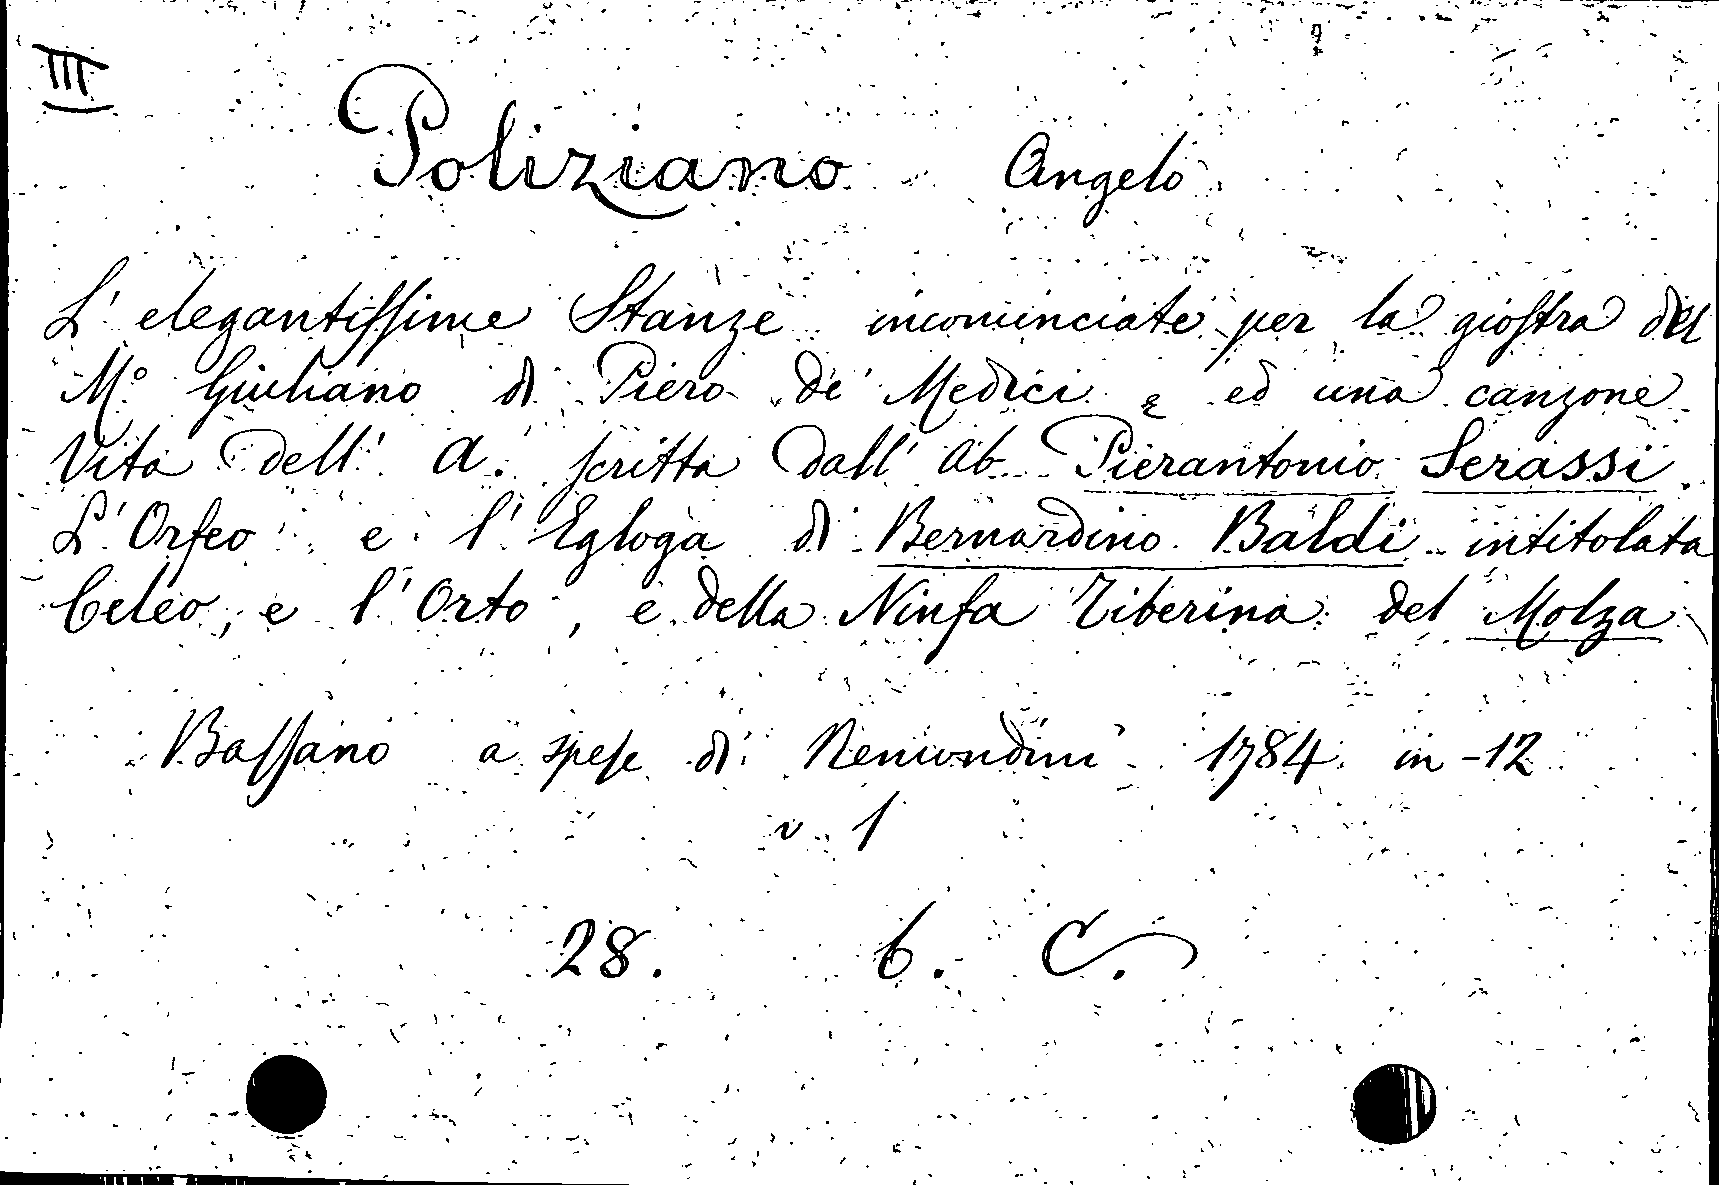 III
Poliziano Angelo
L' elegantissime Stanze incominciate per la giostra del
M.º Giuliano di Piero de' Medici e ed una canzone
Vita dell' A. scritta dall' ab. Pierantonio Serassi.
L'Orfeo e l' Egloga di Bernardino Baldi intitolata
Celeo, e l' Orto, e della Ninfa Tiberina del Molza
Bassano a spese di Remondini 1784 in-12
v. 1
28. 6. C.